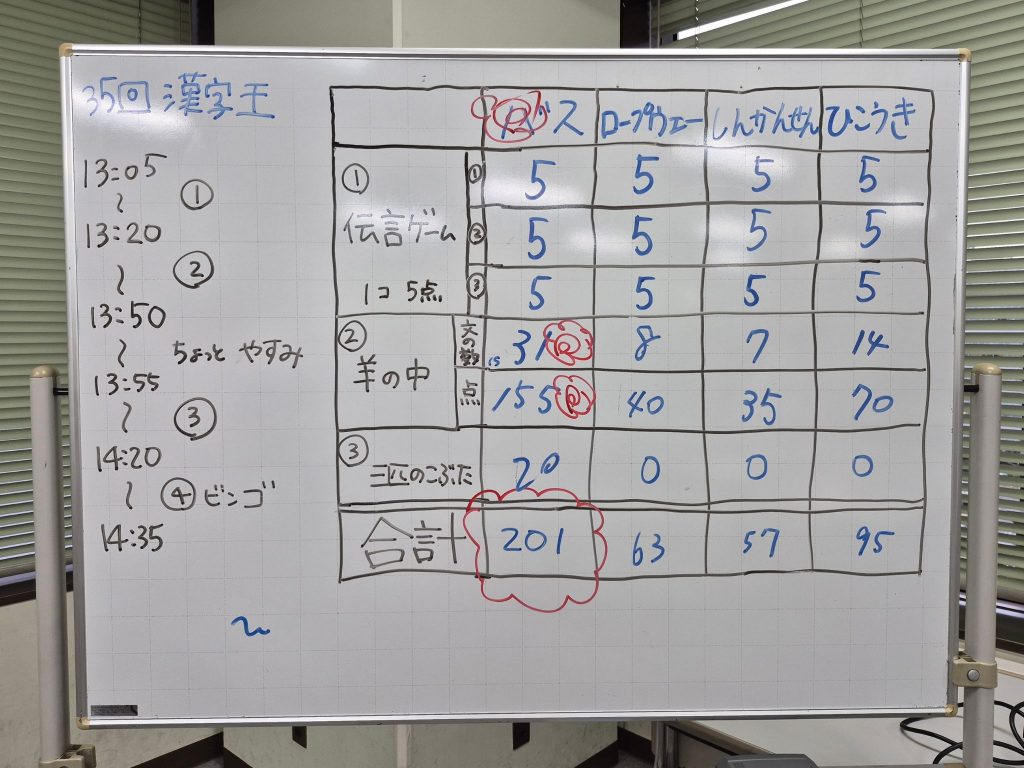 35回 漢字王
13:05
〜 ①
13:20
〜 ②
13:50
〜 ちょっと やすみ
13:55
〜 ③
14:20
〜 ④ ビンゴ
14:35
バス ロープウェー しんかんせん ひこうき
① 伝言ゲーム 1コ 5点
① 5 5 5 5
② 5 5 5 5
③ 5 5 5 5
② 羊の中
文の数 31 8 7 14
点 155 40 35 70
③ 三匹のこぶた 20 0 0 0
合計 201 63 57 95